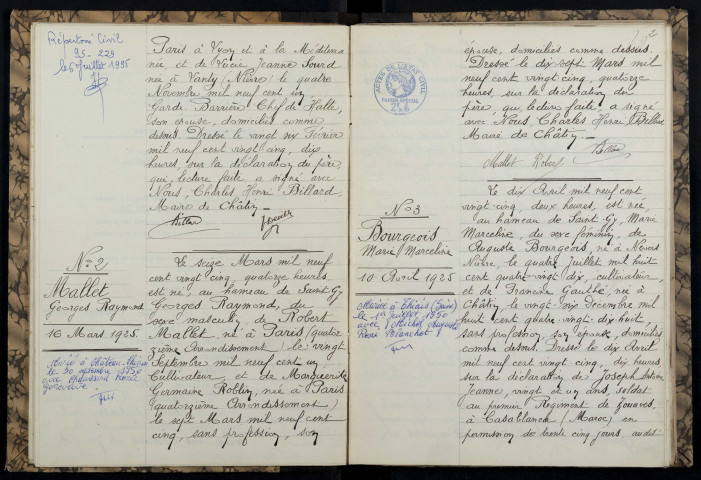 Répertoire Civil
95-229
le 6 Juillet 1995
Paris à Lyon et à la Méditerra
née et de Jeanne Sourd
née à (Nièvre) le quatre
Novembre mil neuf cent un
Garde Barrière Chef de Halte,
son épouse, domiciliés comme
dessus. Dressé le vingt six Février
mil neuf cent vingt cinq, dix
heures, sur la déclaration du père,
qui, lecture faite a signé avec
Nous, Charles Henri Billard,
Maire de Châtin.—
Billard
N° 2
Mallet
Georges Raymond
16 Mars 1925
Marié à Château-
le 30
avec
Geneviève
Le seize Mars mil neuf
cent vingt cinq, quatorze heures
est né, au hameau de Saint Gy
Georges Raymond, du
sexe masculin, de Robert
Mallet, né à Paris (quator
zième Arrondissement) le vingt
Septembre mil neuf cent un
Cultivateur et de Marguerite
Germaine Roblin, née à Paris
(quatorzième Arrondissement)
le sept Mars mil neuf cent
cinq, sans profession, son
2
épouse, domiciliés comme dessus.
Dressé le dix sept Mars mil
neuf cent vingt cinq, quatorze
heures, sur la déclaration du
père, qui, lecture faite, a signé
avec Nous, Charles Henri Billard
Maire de Châtin.—
Billard
Mallet Robert
ACTES DE L'ETAT CIVIL
PAPIER SPECIAL
N° 3
Bourgeois
Marie Marceline
10 Avril 1925
Mariée à Thiais (Seine)
le 1er Juillet 1950
avec Michel Auguste
René Blanchot
Le dix Avril mil neuf cent
vingt cinq, deux heures, est née
au hameau de Saint Gy, Marie
Marceline, du sexe féminin, de
Auguste Bourgeois, né à
Nièvre, le quatre Juillet mil huit
cent quatre vingt dix, cultivateur
et de Francine Gauthé, née à
Châtin, le vingt-six Décembre mil
huit cent quatre-vingt-dix huit
sans profession, son épouse, domiciliés
comme dessus. Dressé le dix Avril
mil neuf cent vingt cinq, dix heures,
sur la déclaration de Joseph
Jeanne, vingt et un ans, soldat
au premier Régiment de Zouaves,
à Casablanca (Maroc) en
permission de trente cinq jours audit